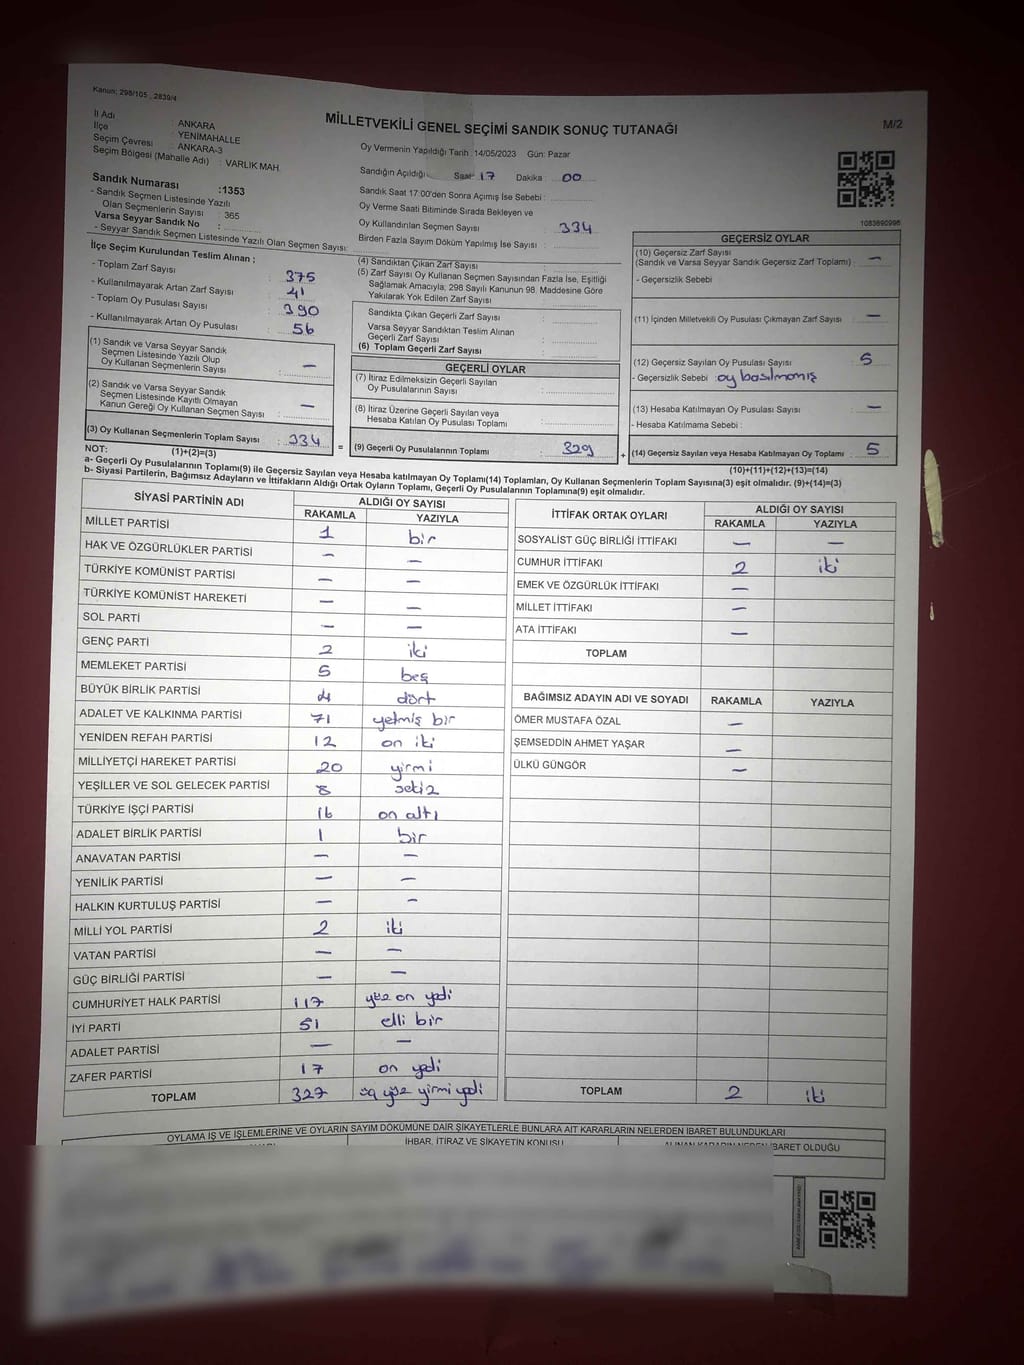 Kanun; 298/105 , 2839/4
MİLLETVEKİLİ GENEL SEÇİMİ SANDIK SONUÇ TUTANAĞI
M/2
İl Adı : ANKARA
İlçe : YENİMAHALLE
Seçim Çevresi : ANKARA-3
Seçim Bölgesi (Mahalle Adı) : VARLIK MAH.
Sandık Numarası :1353
- Sandık Seçmen Listesinde Yazılı
Olan Seçmenlerin Sayısı : 365
Varsa Seyyar Sandık No :
- Seyyar Sandık Seçmen Listesinde Yazılı Olan Seçmen Sayısı:
Oy Vermenin Yapıldığı Tarih :14/05/2023 Gün: Pazar
Sandığın Açıldığı Saat: 17 Dakika : 00
Sandık Saat 17:00'den Sonra Açımış İse Sebebi :
Oy Verme Saati Bitiminde Sırada Bekleyen ve
Oy Kullandırılan Seçmen Sayısı : 334
Birden Fazla Sayım Döküm Yapılmış İse Sayısı :
1083690996
İlçe Seçim Kurulundan Teslim Alınan ;
- Toplam Zarf Sayısı : 375
- Kullanılmayarak Artan Zarf Sayısı : 41
- Toplam Oy Pusulası Sayısı : 390
- Kullanılmayarak Artan Oy Pusulası : 56
(1) Sandık ve Varsa Seyyar Sandık
Seçmen Listesinde Yazılı Olup
Oy Kullanan Seçmenlerin Sayısı : —
(2) Sandık ve Varsa Seyyar Sandık
Seçmen Listesinde Kayıtlı Olmayan
Kanun Gereği Oy Kullanan Seçmen Sayısı : —
(3) Oy Kullanan Seçmenlerin Toplam Sayısı : 334 =
(1)+(2)=(3)
(4) Sandıktan Çıkan Zarf Sayısı :
(5) Zarf Sayısı Oy Kullanan Seçmen Sayısından Fazla İse, Eşitliği
Sağlamak Amacıyla; 298 Sayılı Kanunun 98. Maddesine Göre
Yakılarak Yok Edilen Zarf Sayısı :
Sandıkta Çıkan Geçerli Zarf Sayısı :
Varsa Seyyar Sandıktan Teslim Alınan
Geçerli Zarf Sayısı :
(6) Toplam Geçerli Zarf Sayısı :
GEÇERLİ OYLAR
(7) İtiraz Edilmeksizin Geçerli Sayılan
Oy Pusulalarının Sayısı :
(8) İtiraz Üzerine Geçerli Sayılan veya
Hesaba Katılan Oy Pusulası Toplamı :
(9) Geçerli Oy Pusulalarının Toplamı : 329 +
GEÇERSİZ OYLAR
(10) Geçersiz Zarf Sayısı
(Sandık ve Varsa Seyyar Sandık Geçersiz Zarf Toplamı) : —
- Geçersizlik Sebebi :
(11) İçinden Milletvekili Oy Pusulası Çıkmayan Zarf Sayısı : —
(12) Geçersiz Sayılan Oy Pusulası Sayısı : 5
- Geçersizlik Sebebi : oy basılmamış
(13) Hesaba Katılmayan Oy Pusulası Sayısı : —
- Hesaba Katılmama Sebebi :
(14) Geçersiz Sayılan veya Hesaba Katılmayan Oy Toplamı : 5
(10)+(11)+(12)+(13)=(14)
NOT:
a- Geçerli Oy Pusulalarının Toplamı(9) ile Geçersiz Sayılan veya Hesaba katılmayan Oy Toplamı(14) Toplamları, Oy Kullanan Seçmenlerin Toplam Sayısına(3) eşit olmalıdır. (9)+(14)=(3)
b- Siyasi Partilerin, Bağımsız Adayların ve İttifakların Aldığı Ortak Oyların Toplamı, Geçerli Oy Pusulalarının Toplamına(9) eşit olmalıdır.
SİYASİ PARTİNİN ADI ALDIĞI OY SAYISI
RAKAMLA YAZIYLA
MİLLET PARTİSİ 1 bir
HAK VE ÖZGÜRLÜKLER PARTİSİ — —
TÜRKİYE KOMÜNİST PARTİSİ — —
TÜRKİYE KOMÜNİST HAREKETİ — —
SOL PARTİ — —
GENÇ PARTİ 2 iki
MEMLEKET PARTİSİ 5 beş
BÜYÜK BİRLİK PARTİSİ 4 dört
ADALET VE KALKINMA PARTİSİ 71 yetmiş bir
YENİDEN REFAH PARTİSİ 12 on iki
MİLLİYETÇİ HAREKET PARTİSİ 20 yirmi
YEŞİLLER VE SOL GELECEK PARTİSİ 8 sekiz
TÜRKİYE İŞÇİ PARTİSİ 16 on altı
ADALET BİRLİK PARTİSİ 1 bir
ANAVATAN PARTİSİ — —
YENİLİK PARTİSİ — —
HALKIN KURTULUŞ PARTİSİ — —
MİLLİ YOL PARTİSİ 2 iki
VATAN PARTİSİ — —
GÜÇ BİRLİĞİ PARTİSİ — —
CUMHURİYET HALK PARTİSİ 117 yüz on yedi
İYİ PARTİ 51 elli bir
ADALET PARTİSİ — —
ZAFER PARTİSİ 17 on yedi
TOPLAM 327 üç yüz yirmi yedi
İTTİFAK ORTAK OYLARI ALDIĞI OY SAYISI
RAKAMLA YAZIYLA
SOSYALİST GÜÇ BİRLİĞİ İTTİFAKI — —
CUMHUR İTTİFAKI 2 iki
EMEK VE ÖZGÜRLÜK İTTİFAKI —
MİLLET İTTİFAKI —
ATA İTTİFAKI —
TOPLAM
BAĞIMSIZ ADAYIN ADI VE SOYADI RAKAMLA YAZIYLA
ÖMER MUSTAFA ÖZAL —
ŞEMSEDDİN AHMET YAŞAR —
ÜLKÜ GÜNGÖR —
TOPLAM 2 iki
OYLAMA İŞ VE İŞLEMLERİNE VE OYLARIN SAYIM DÖKÜMÜNE DAİR ŞİKAYETLERLE BUNLARA AİT KARARLARIN NELERDEN İBARET BULUNDUKLARI
İHBAR, İTİRAZ VE ŞİKAYETİN KONUSU
ALINAN KARARIN NEDEN İBARET OLDUĞU